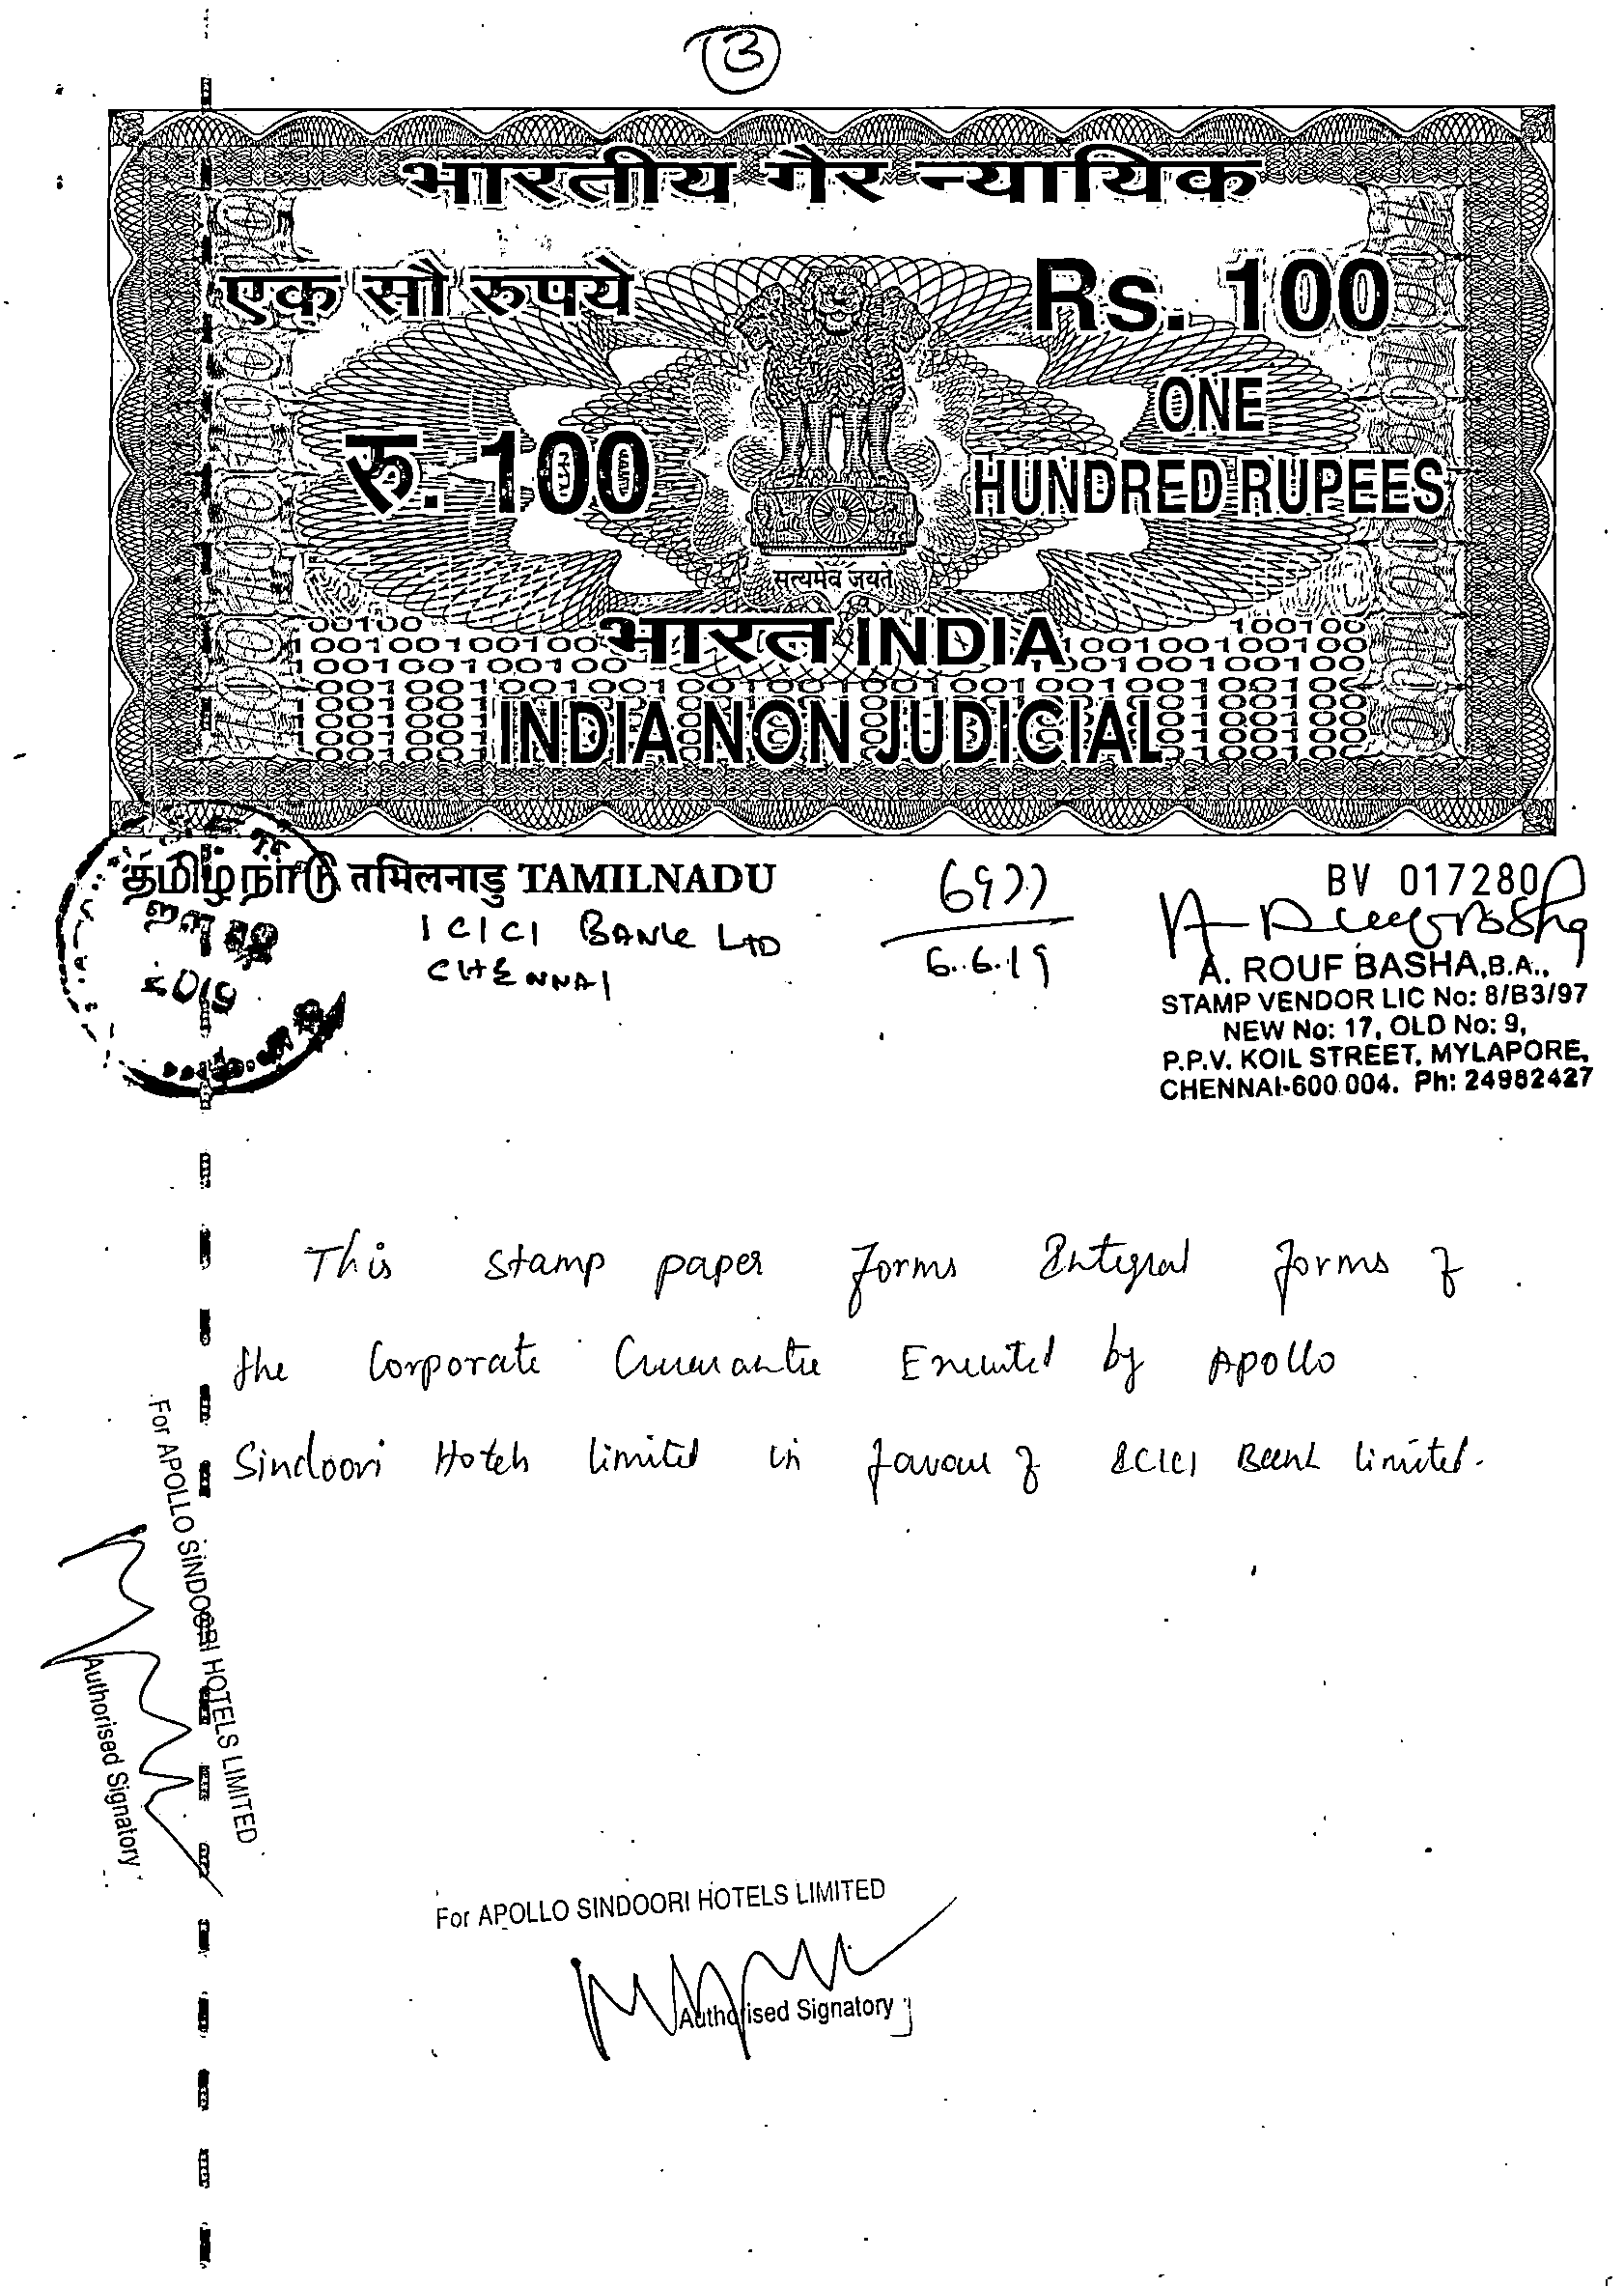 3
भारतीय गैर न्यायिक
एक सौ रुपये
Rs. 100
रु. 100
ONE
HUNDRED RUPEES
सत्यमेव जयते
भारत INDIA
INDIA NON JUDICIAL
தமிழ்நாடு तमिलनाडु TAMILNADU
BV 017280
ICICI BANK LTD
CHENNAI
6977
6.6.19
2019
A. ROUF BASHA, B.A.,
STAMP VENDOR LIC No: 8/B3/97
NEW No: 17, OLD No: 9,
P.P.V. KOIL STREET, MYLAPORE,
CHENNAI-600 004. Ph: 24982427
This stamp paper forms Integral forms of
the Corporate Guarantee Executed by Apollo
Sindoori Hotels Limited in favour of ICICI Bank Limited.
For APOLLO SINDOORI HOTELS LIMITED
Authorised Signatory
For APOLLO SINDOORI HOTELS LIMITED
Authorised Signatory